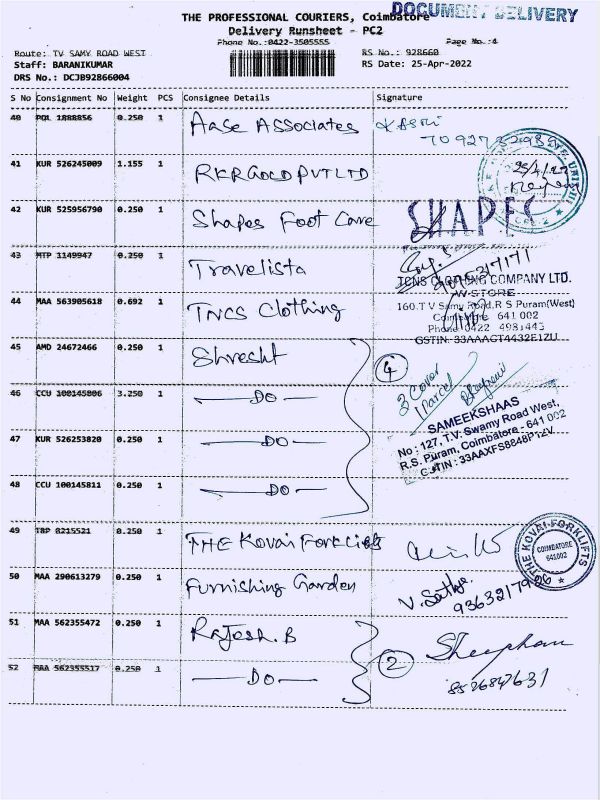 THE PROFESSIONAL COURIERS, Coimbatore
DOCUMENT DELIVERY
Delivery Runsheet - PC2
Phone No.:0422-3505555
Page No.:4
Route: TV SAMY ROAD WEST
RS No.: 928660
Staff: BARANIKUMAR
RS Date: 25-Apr-2022
DRS No.: DCJB92866004
S No Consignment No Weight PCS Consignee Details Signature
40 POL 1888856 0.250 1 Aase Associates
41 KUR 526245009 1.155 1 RKR GOLD PVT LTD
42 KUR 525956790 0.250 1 Shapes Foot Care
SHAPES
43 MTP 1149947 0.250 1 Travelista
44 MAA 563905618 0.692 1 TNCS Clothing
TCNS CLOTHING COMPANY LTD.
W STORE
160.T V Samy Road,R S Puram(West)
Coimbatore 641 002
Phone 0422 4981443
GSTIN: 33AAACT4432E1ZU
45 AMD 24672466 0.250 1 Shresht
4
46 CCU 100145806 3.250 1 DO
3 Cover
1 Parcel
47 KUR 526253820 0.250 1 DO
SAMEEKSHAAS
No : 127, T.V. Swamy Road West,
R.S. Puram, Coimbatore - 641 002
GSTIN : 33AAXFS8848P1ZV
48 CCU 100145811 0.250 1 DO
49 TRP 8215521 0.250 1 THE Kovai Forklifts
THE KOVAI FORKLIFTS
COIMBATORE
641 002
50 MAA 290613279 0.250 1 Furnishing Garden
V. Sathya
51 MAA 562355472 0.250 1 Rajesh. B
2
52 MAA 562355517 0.250 1 DO
8526847631